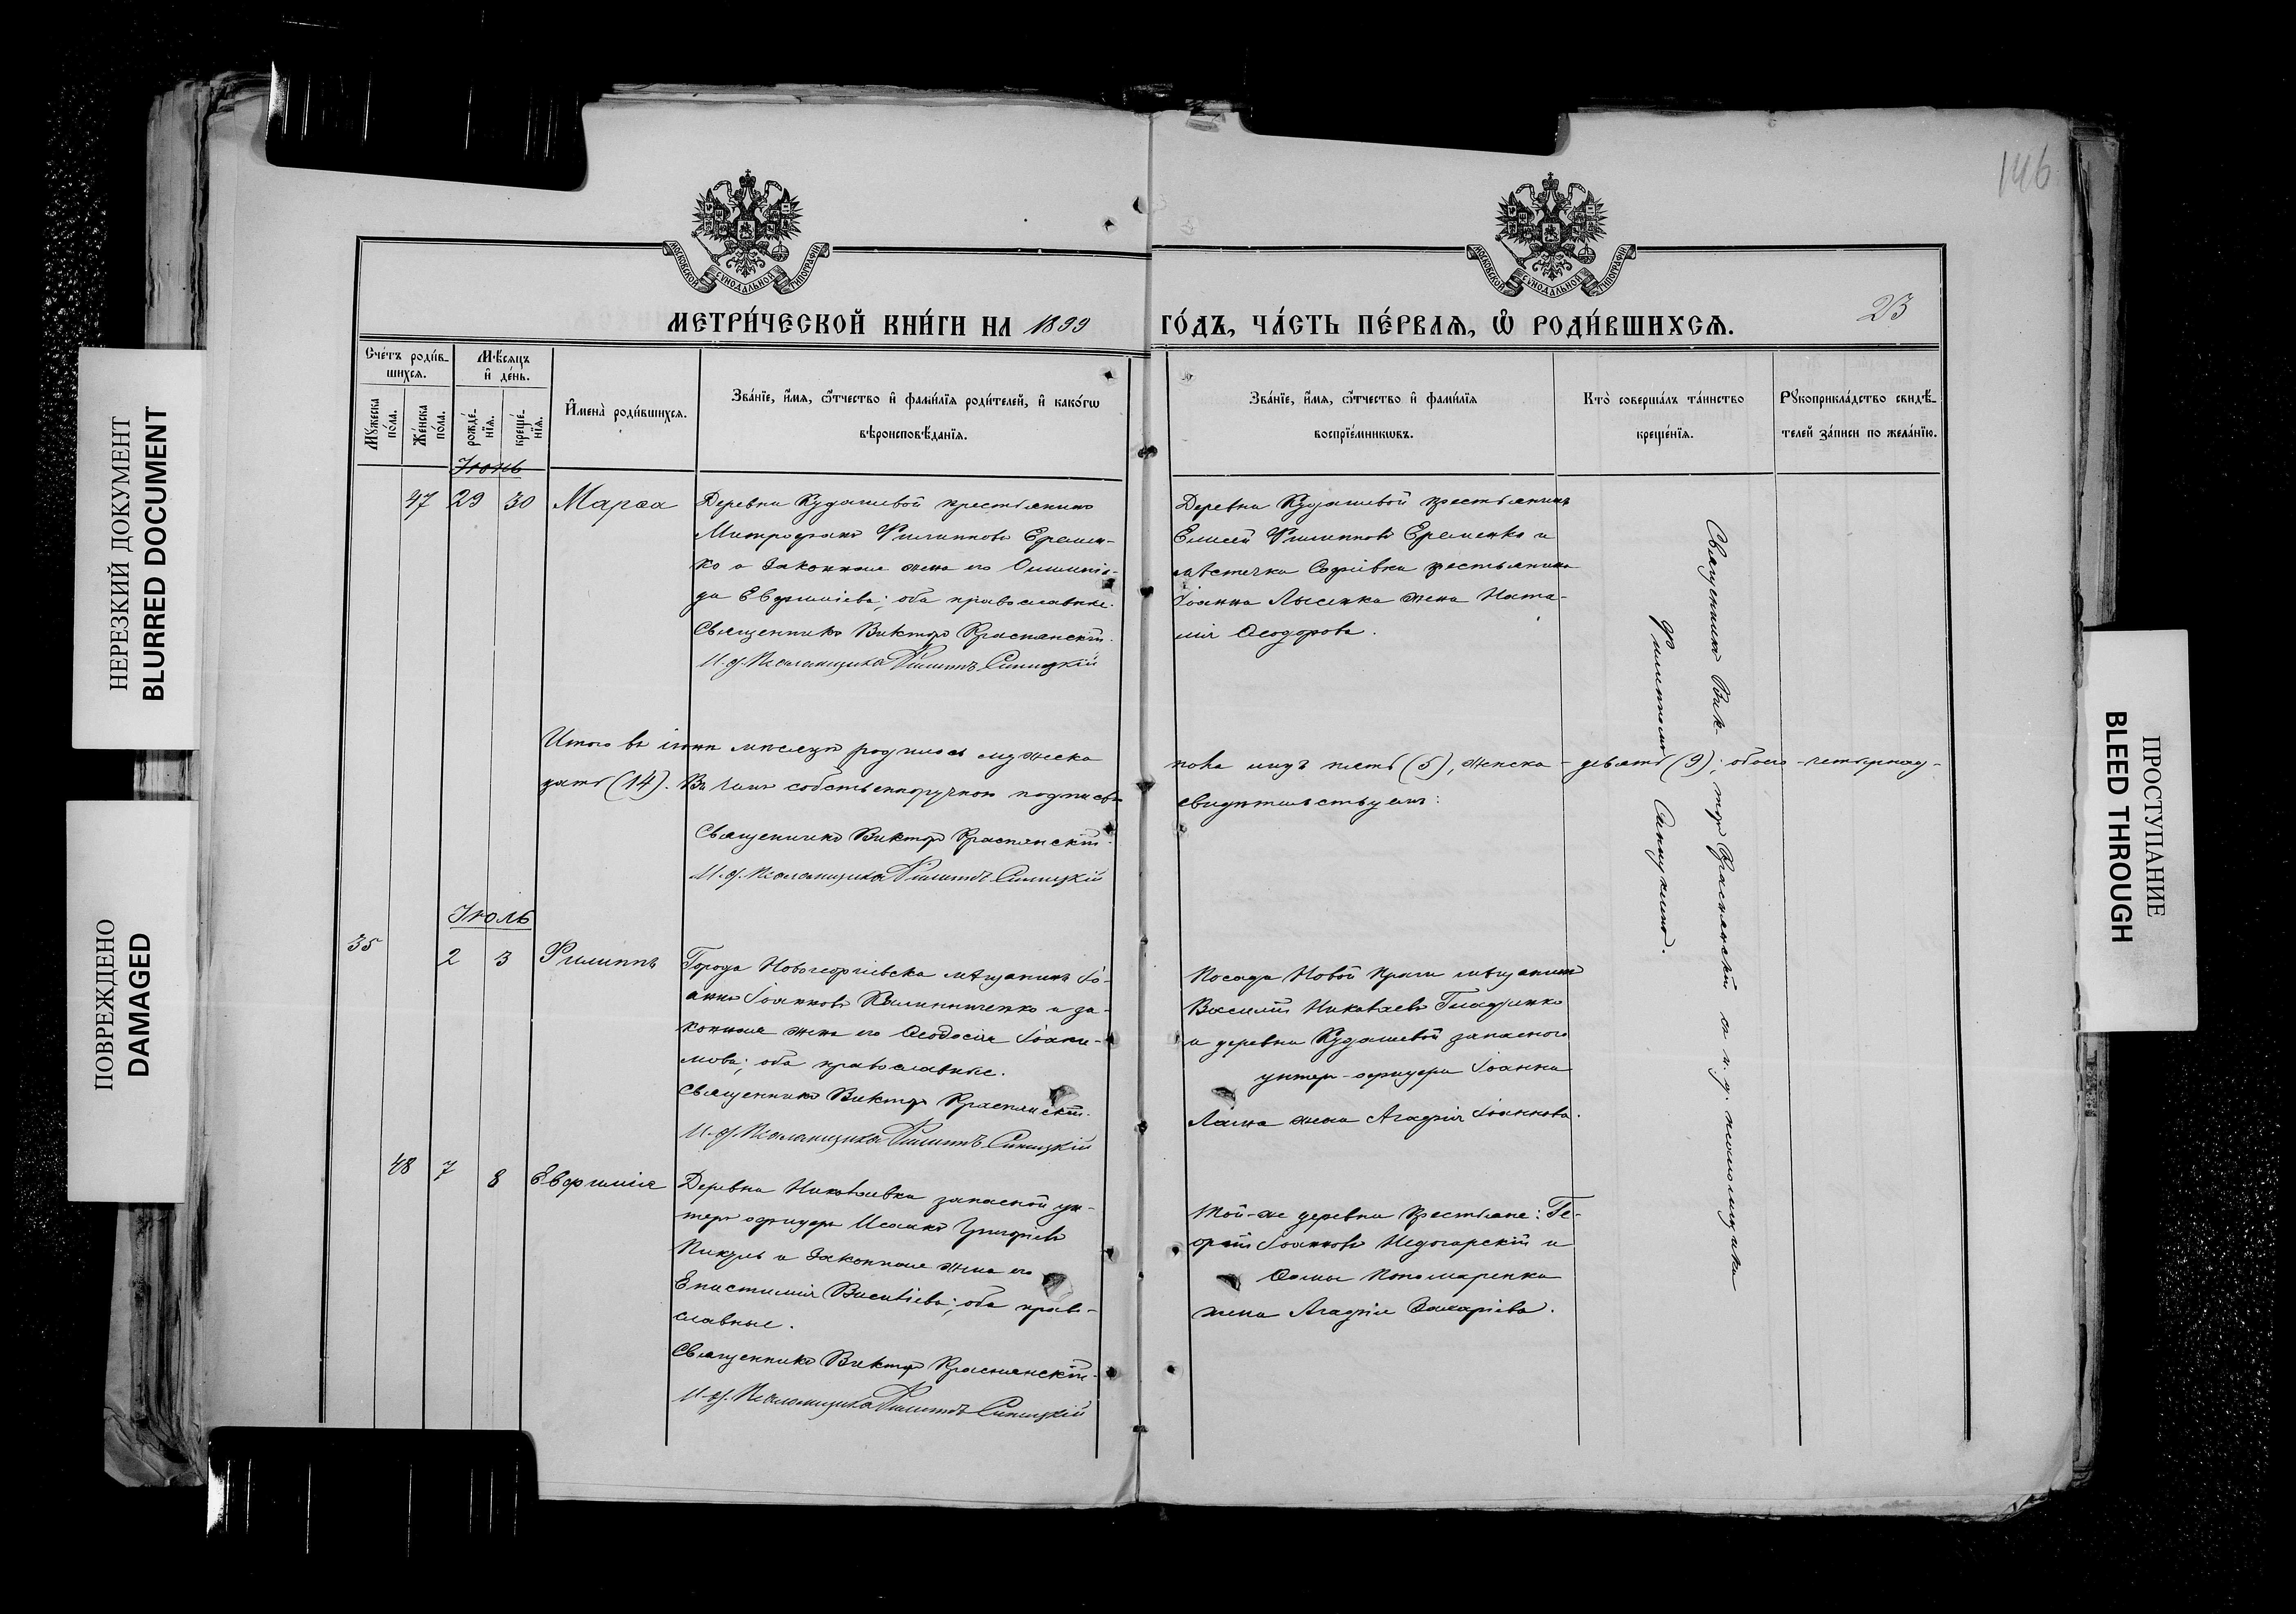 146
МОСКОВСКОЙ СУНОДАЛЬНОЙ ТИПОГРАФІИ
МОСКОВСКОЙ СУНОДАЛЬНОЙ ТИПОГРАФІИ
МЕТРИ́ЧЕСКОЙ КНИ́ГИ НА 1899 ГО́ДЪ, ЧА́СТЬ ПЕ́РВАѦ, Ѽ РОДИ́ВШИХСѦ.
23
Сче́тъ роди́в-
шихсѧ.
Мѣ́сѧцъ
и҆ де́нь.
Мꙋ́жеска по́ла.
Же́нска по́ла.
рожде́-нїѧ.
креще́-нїѧ.
И҆мена̀ роди́вшихсѧ.
Зва́нїе, и҆́мѧ, ѻ҆́тчество и҆ фами́лїѧ роди́телей, и҆ како́гѡ
вѣроисповѣ́данїѧ.
Зва́нїе, и҆́мѧ, ѻ҆́тчество и҆ фами́лїѧ
воспрїе́мникѡвъ.
Кто̀ соверша́лъ та́инство
креще́нїѧ.
Рꙋкоприкла́дство свидѣ́-
телей за́писи по жела́нїю.
Іюнь
47 29 30 Марѳа
Деревни Кудашевой крестьянинъ
Митрофанъ Филипповъ Еремен-
ко и законная жена его Олимпіа-
да Евфиміева; оба православные.
Священникъ Викторъ Краснянскій.
И. д. Псаломщика Филиппъ Синицкій
Деревни Кудашевой крестьянинъ
Елисей Филипповъ Еременко и
мѣстечка Софіевки крестьянина
Іоанна Лысенка жена Ната-
лія Ѳеодорова.
Священникъ Вик-
торъ Краснянскій съ и. д. псаломщика
Филиппомъ Синицкимъ.
Итого въ іюнѣ мѣсяцѣ родилось мужеска пола лицъ пять (5), женска - девять (9); обоего - четырнад-
цать (14). Въ чемъ собственноручною подписью свидѣтельствуемъ:
Священникъ Викторъ Краснянскій.
И. д. Псаломщика Филиппъ Синицкій
Іюль
35 2 3 Филиппъ
Города Новогеоргіевска мѣщанинъ Іо-
аннъ Іоанновъ Калиниченко и за-
конная жена его Ѳеодосія Іоаки-
мова; оба православные.
Священникъ Викторъ Краснянскій.
И. д. Псаломщика Филиппъ Синицкій
Посада Новой Праги мѣщанинъ
Василій Николаевъ Гладченко
и деревни Кудашевой запасного
унтеръ-офицера Іоанна
жена Агафія Іоаннова.
48 7 8 Евфимія
Деревни Николаевки запасной ун-
теръ офицеръ Исаакъ Григорьевъ
Пикуль и законная жена его
Епистимія Васильева; оба право-
славные.
Священникъ Викторъ Краснянскій.
И. д. Псаломщика Филиппъ Синицкій
Той-же деревни крестьяне: Ге-
оргій Іоанновъ Недогарскій и
Ѳомы Пономаренка
жена Агафія Захаріева.
НЕРЕЗКИЙ ДОКУМЕНТ
BLURRED DOCUMENT
ПОВРЕЖДЕНО
DAMAGED
ПРОСТУПАНИЕ
BLEED THROUGH